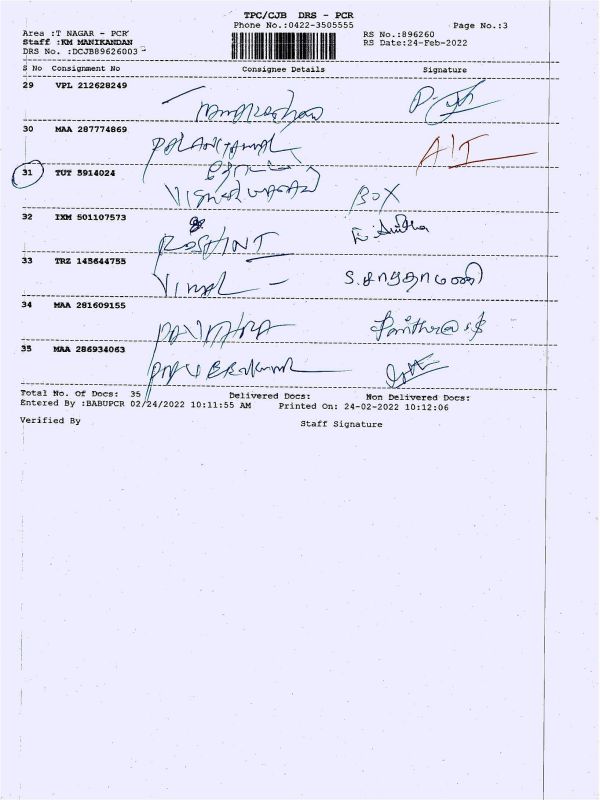 TPC/CJB DRS - PCR
Phone No.:0422-3505555 Page No.:3
Area :T NAGAR - PCR RS No.:896260
Staff :KM MANIKANDAN RS Date:24-Feb-2022
DRS No. :DCJB89626003
S No Consignment No Consignee Details Signature
29 VPL 212628249
30 MAA 287774869
31 TUT 5914024 BOX
32 IXM 501107573 ROSHINI
33 TRZ 145644755 VIMAL
34 MAA 281609155 PAVITHRA
35 MAA 286934063
Total No. Of Docs: 35 Delivered Docs: Non Delivered Docs:
Entered By :BABUPCR 02/24/2022 10:11:55 AM Printed On: 24-02-2022 10:12:06
Verified By Staff Signature